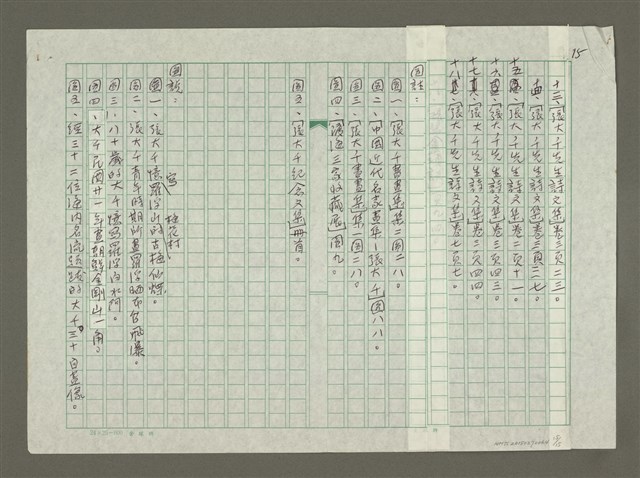 15
十三、「張大千先生詩文集」卷三頁二三。
十四、「張大千先生詩文集」卷三頁二七。
十五、「張大千先生詩文集」卷二頁十一。
十六、「張大千先生詩文集」卷三頁四三。
十七、「張大千先生詩文集」卷二頁四四。
十八、「張大千先生詩文集」卷七頁七。
圖註：
圖一、「張大千書畫集」集二圖二八。
圖二、「中國近代名家畫集—張大千」圖八八。
圖三、「張大千書畫集」集一圖二八。
圖四、「渡海三家收藏展」圖九。
圖五、「張大千紀念文集」冊首。
圖說：
圖一、張大千憶寫羅浮山的古梅仙壇梅花村。
圖二、張大千青年時期所畫羅浮山水官飛瀑。
圖三、八十歲的大千憶寫羅浮白水門。
圖四、大千民國廿一年畫朝鮮金剛山一角。
圖五、經三十二位海內名流題跋的大千三十自畫像。